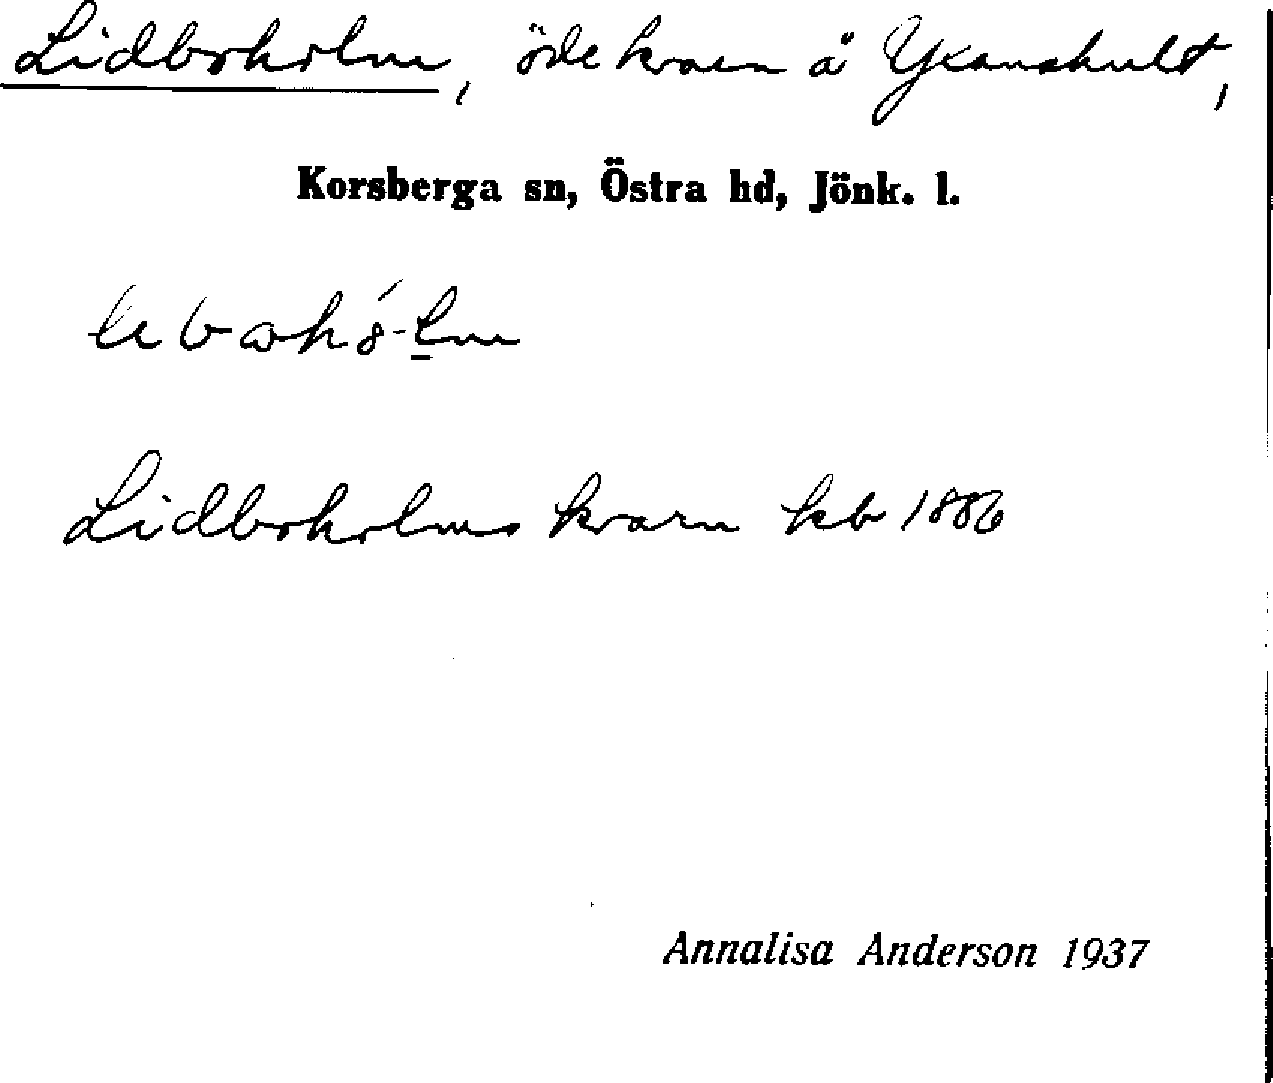 Lidboholm, öde kvarn å Ykanshult,
Korsberga sn, Östra hd, Jönk. l.
Lidboholms kvarn hb 1886
Annalisa Anderson 1937